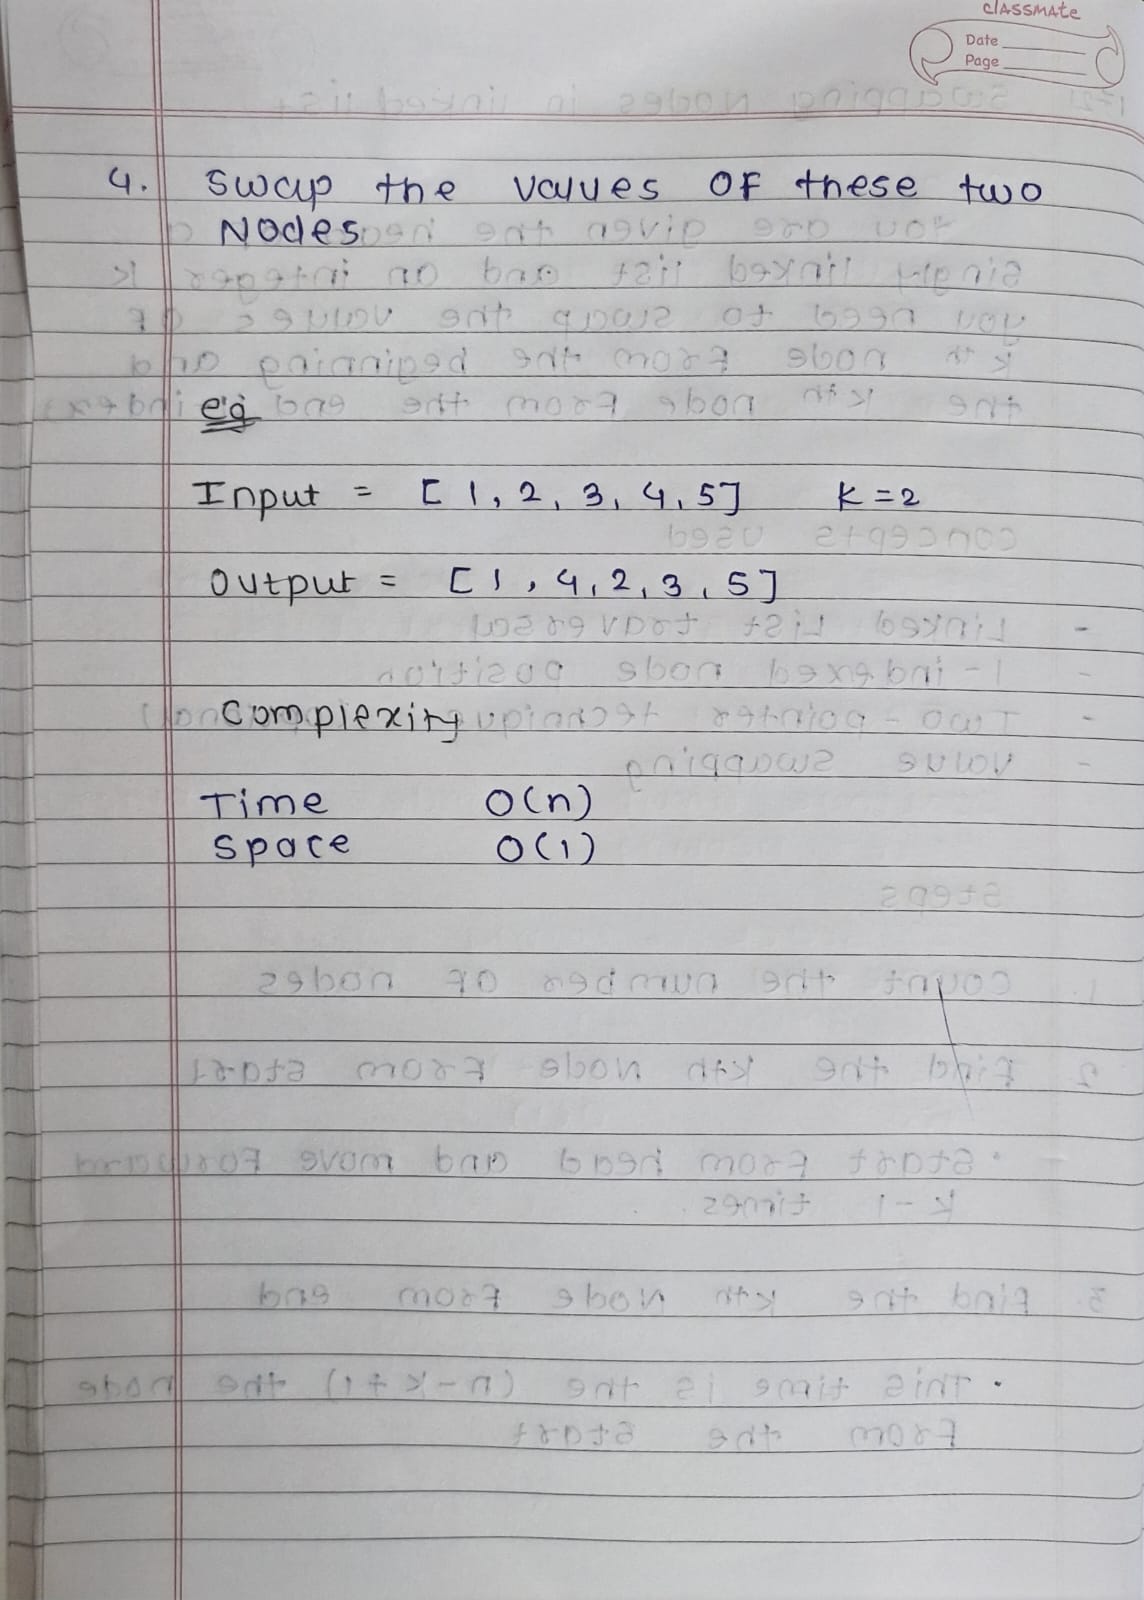 classmate
Date
Page
4. Swap the values of these two
Nodes
eg
Input = [ 1, 2, 3, 4, 5] K = 2
Output = [ 1, 4, 2, 3, 5]
Complexity
Time O(n)
Space O(1)